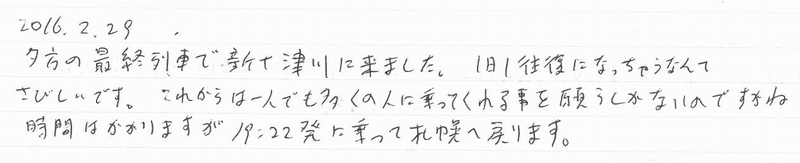 2016.2.29
夕方の最終列車で新十津川に来ました。1日1往復になっちゃうなんて
さびしいです。これからは一人でも多くの人に乗ってくれる事を願うしかないのですかね
時間はかかりますが19:22発に乗って札幌へ戻ります。